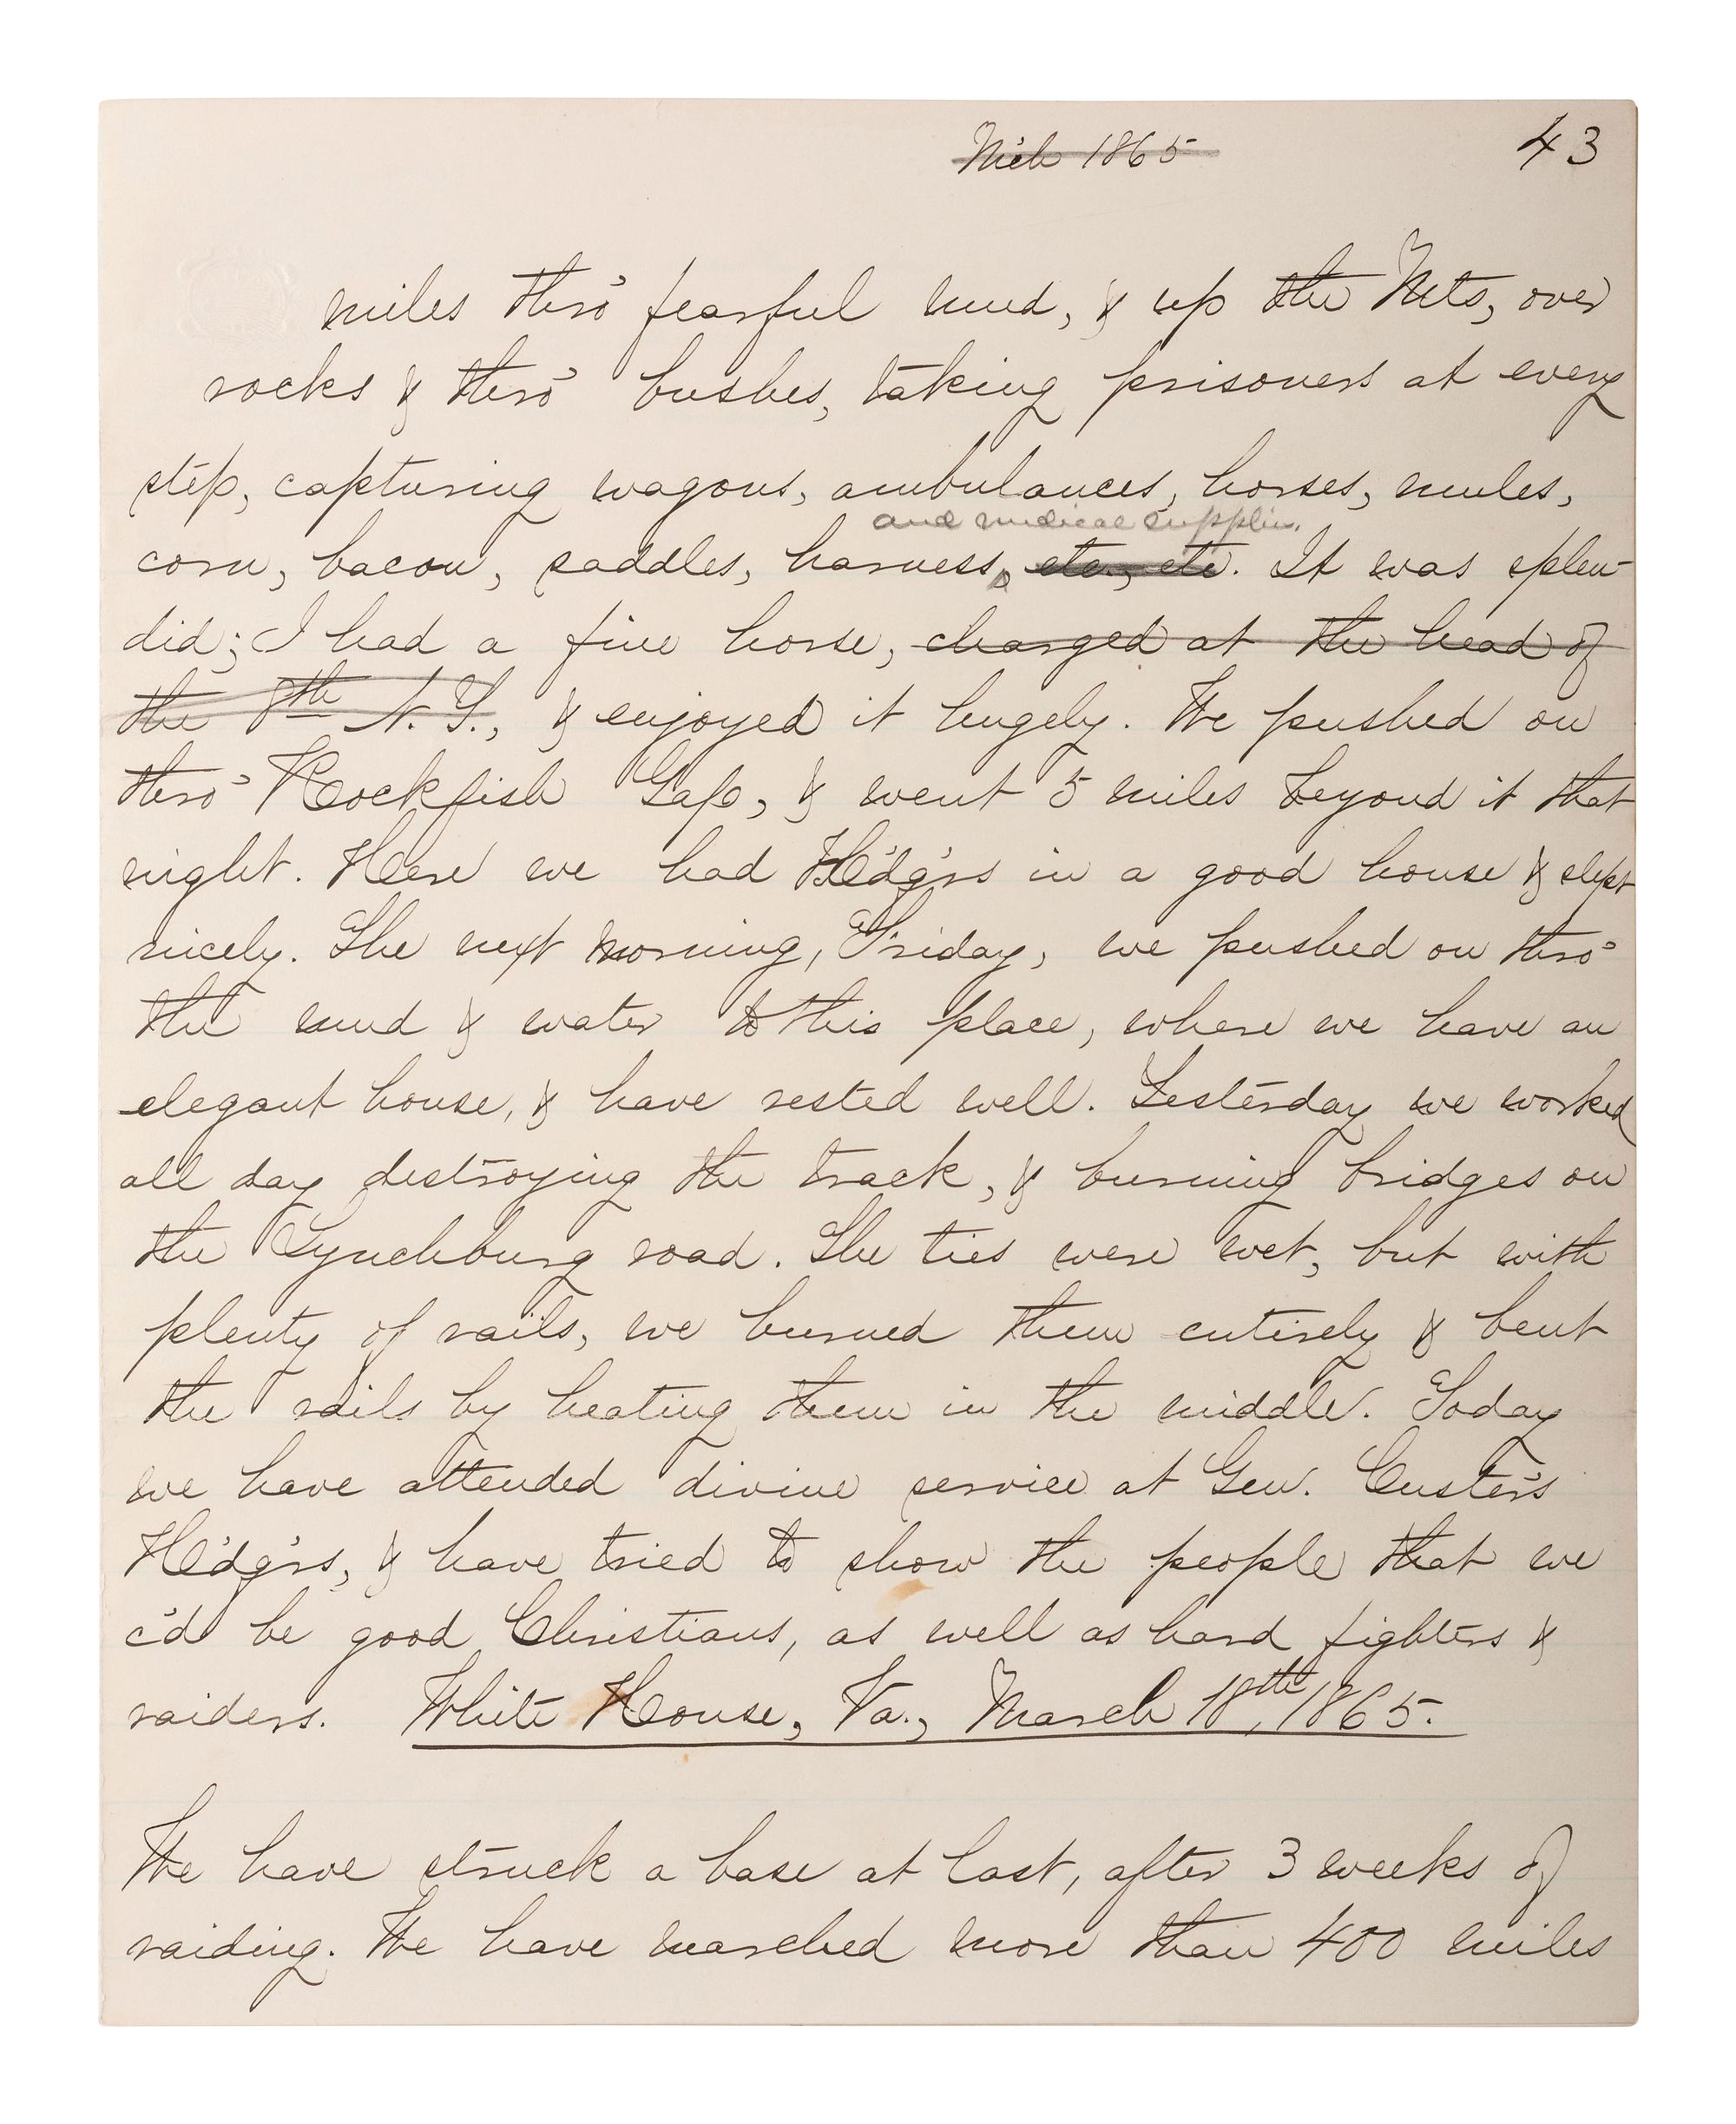 Mch 1865
43
miles thro' fearful mud, & up the Mts, over
rocks & thro' bushes, taking prisoners at every
step, capturing wagons, ambulances, horses, mules,
and medical supplies.
corn, bacon, saddles, harness, etc., etc. It was splen-
did; I had a fine horse, charged at the head of
the 8th N.Y., & enjoyed it hugely. We pushed on
thro' Rockfish Gap, & went 5 miles beyond it that
night. Here we had H'd'q'rs in a good house & slept
nicely. The next morning, Friday, we pushed on thro'
the mud & water to this place, where we have an
elegant house, & have rested well. Yesterday we worked
all day destroying the track, & burning bridges on
the Lynchburg road. The ties were wet, but with
plenty of rails, we burned them entirely & bent
the rails by heating them in the middle. Today
we have attended divine service at Gen. Custer's
H'd'q'rs, & have tried to show the people that we
c'd be good Christians, as well as hard fighters &
raiders. White House, Va., March 18th, 1865.
We have struck a base at last, after 3 weeks of
raiding. We have marched more than 400 miles